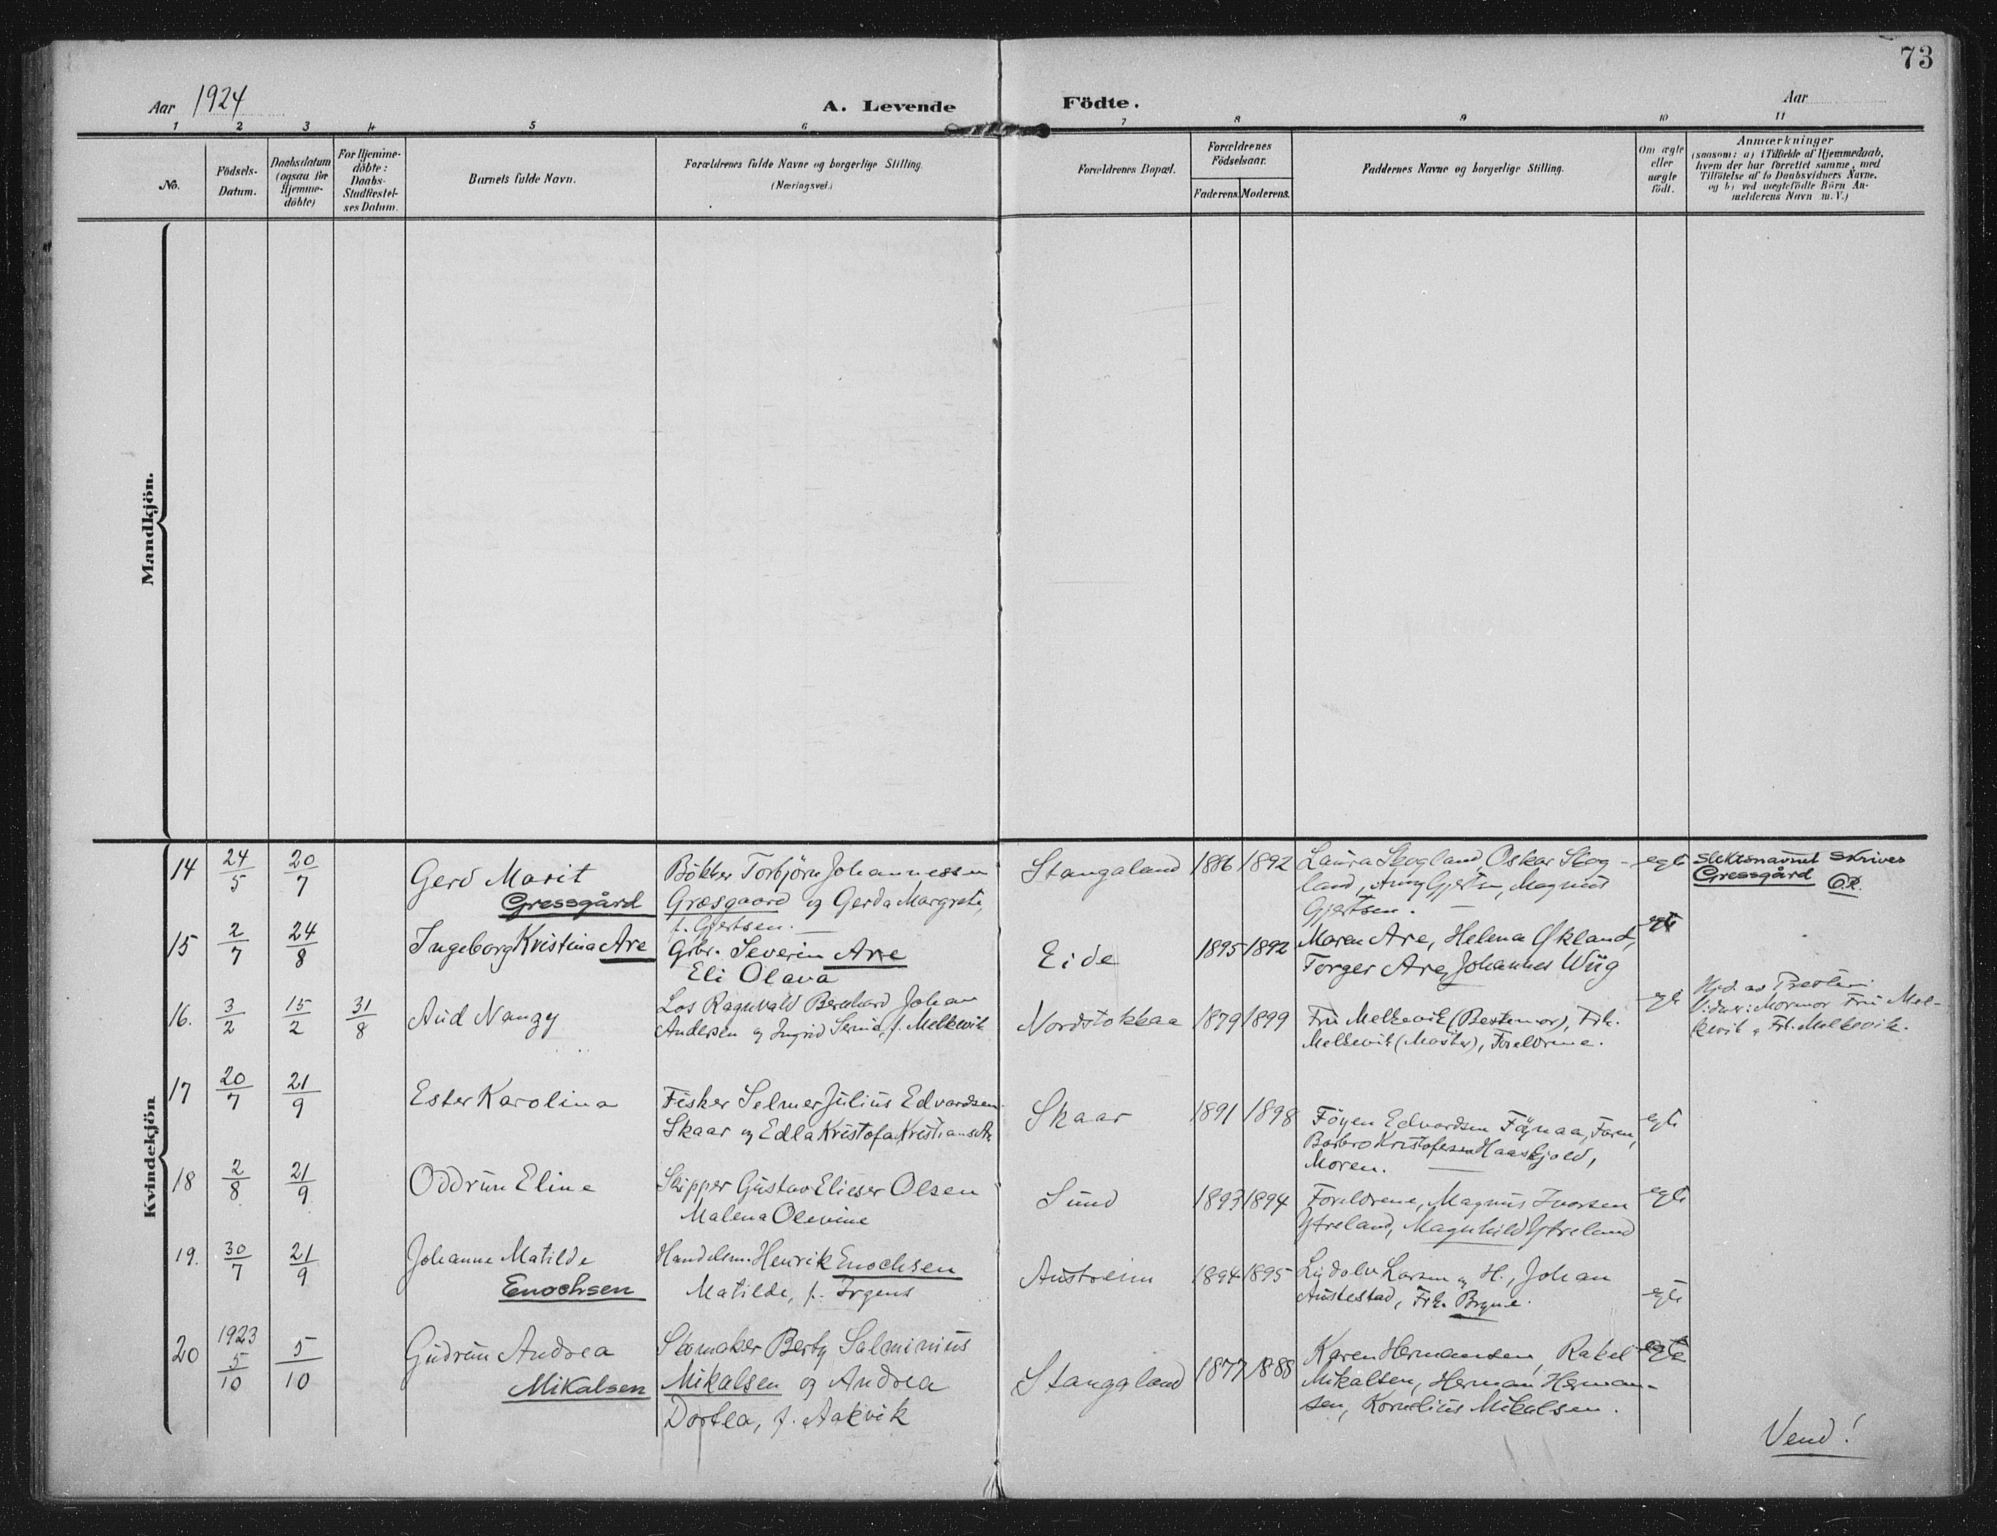 73
Aar 1924
A. Levende Födte.
Aar
1 2 3 4 5 6 7 8 9 10 11
No.
Födsels-
Datum.
Daabsdatum
(ogsaa for
Hjemme-
döbte)
For Hjemme-
döbte:
Daabs-
Stadfæstel-
ses Datum.
Barnets fulde Navn.
Forældrenes fulde Navne og borgerlige Stilling.
(Næringsvei.)
Forældrenes Bopæl.
Forældrenes
Födselsaar.
Faderens. Moderens.
Faddernes Navne og borgerlige Stilling.
Om ægte
eller
uægte
födt.
Anmærkninger
(saasom: a) i Tilfælde af Hjemmedaab,
hvem der har forrettet samme, med
Tilföielse af to Daabsvidners Navne,
og b) ved uægtefödte Börn An-
melderens Navn m. V.)
Mandkjön.
Kvindekjön
14 24/5 20/7
Gerd Marit
Gressgård
Bökker Torbjörn Johannessen
Græsgaard og Gerda Margrete,
f. Gjertsen.
Stangaland
1886 1892
Laura Skogland, Oskar Skog-
land, Amy Gjertsen, Magnus
Gjertsen.
egte
Slektsnavnet skrives
Gressgård
15 2/7 24/8
Ingeborg Kristina Are
Grbr. Severin Are
Eli Olava
Eide
1895 1892
Maren Are, Helena Økland,
Torger Are, Johannes Wiig
egte
16. 3/2 15/2 31/8
Aud Nanzy
Los Ragnvald Bernhard Johan
Andersen og Ingrid f. Melkevik
Nordstokkaa
1879 1899
Fru Melkevik (Bestemor), Frk.
Melkevik (Moster), Foreldrene.
egte
Hjd. av Presten.
Vidner: Mormor Fru Mel-
kevik, Frk. Melkevik.
17 20/7 21/9
Ester Karolina
Fisker Selmer Julius Edvardsen
Skaar og Edla Kristofa Kristiansdr.
Skaar
1891 1898
Föyen Edvardsen Föynaa, Faren,
Barbro Kristofersen Haaskjold,
Moren.
egte
18 2/8 21/9
Oddrun Eline
Skipper Gustav Elieser Olsen
Malena Olevine
Sund
1893 1894
Foreldrene, Magnus Ivarsen
Ytreland, Magnhild Ytreland
egte
19. 30/7 21/9
Johanne Matilde
Enochsen
Handelsm. Henrik Enochsen
Matilde, f. Irgens
Austreim
1894 1895
Lydolv Larsen og H., Johan
Austestad, Frk. Bryne.
egte
20 1923 5/10 5/10
Gudrun Andrea
Mikalsen
Skomaker Berty Salminius
Mikalsen og Andrea
Dortea, f. Aakvik
Stangaland
1877 1888
Karen Hermansen, Rakel
Mikalsen, Herman Herman-
sen, Kornelius Mikalsen.
egte
Vend!